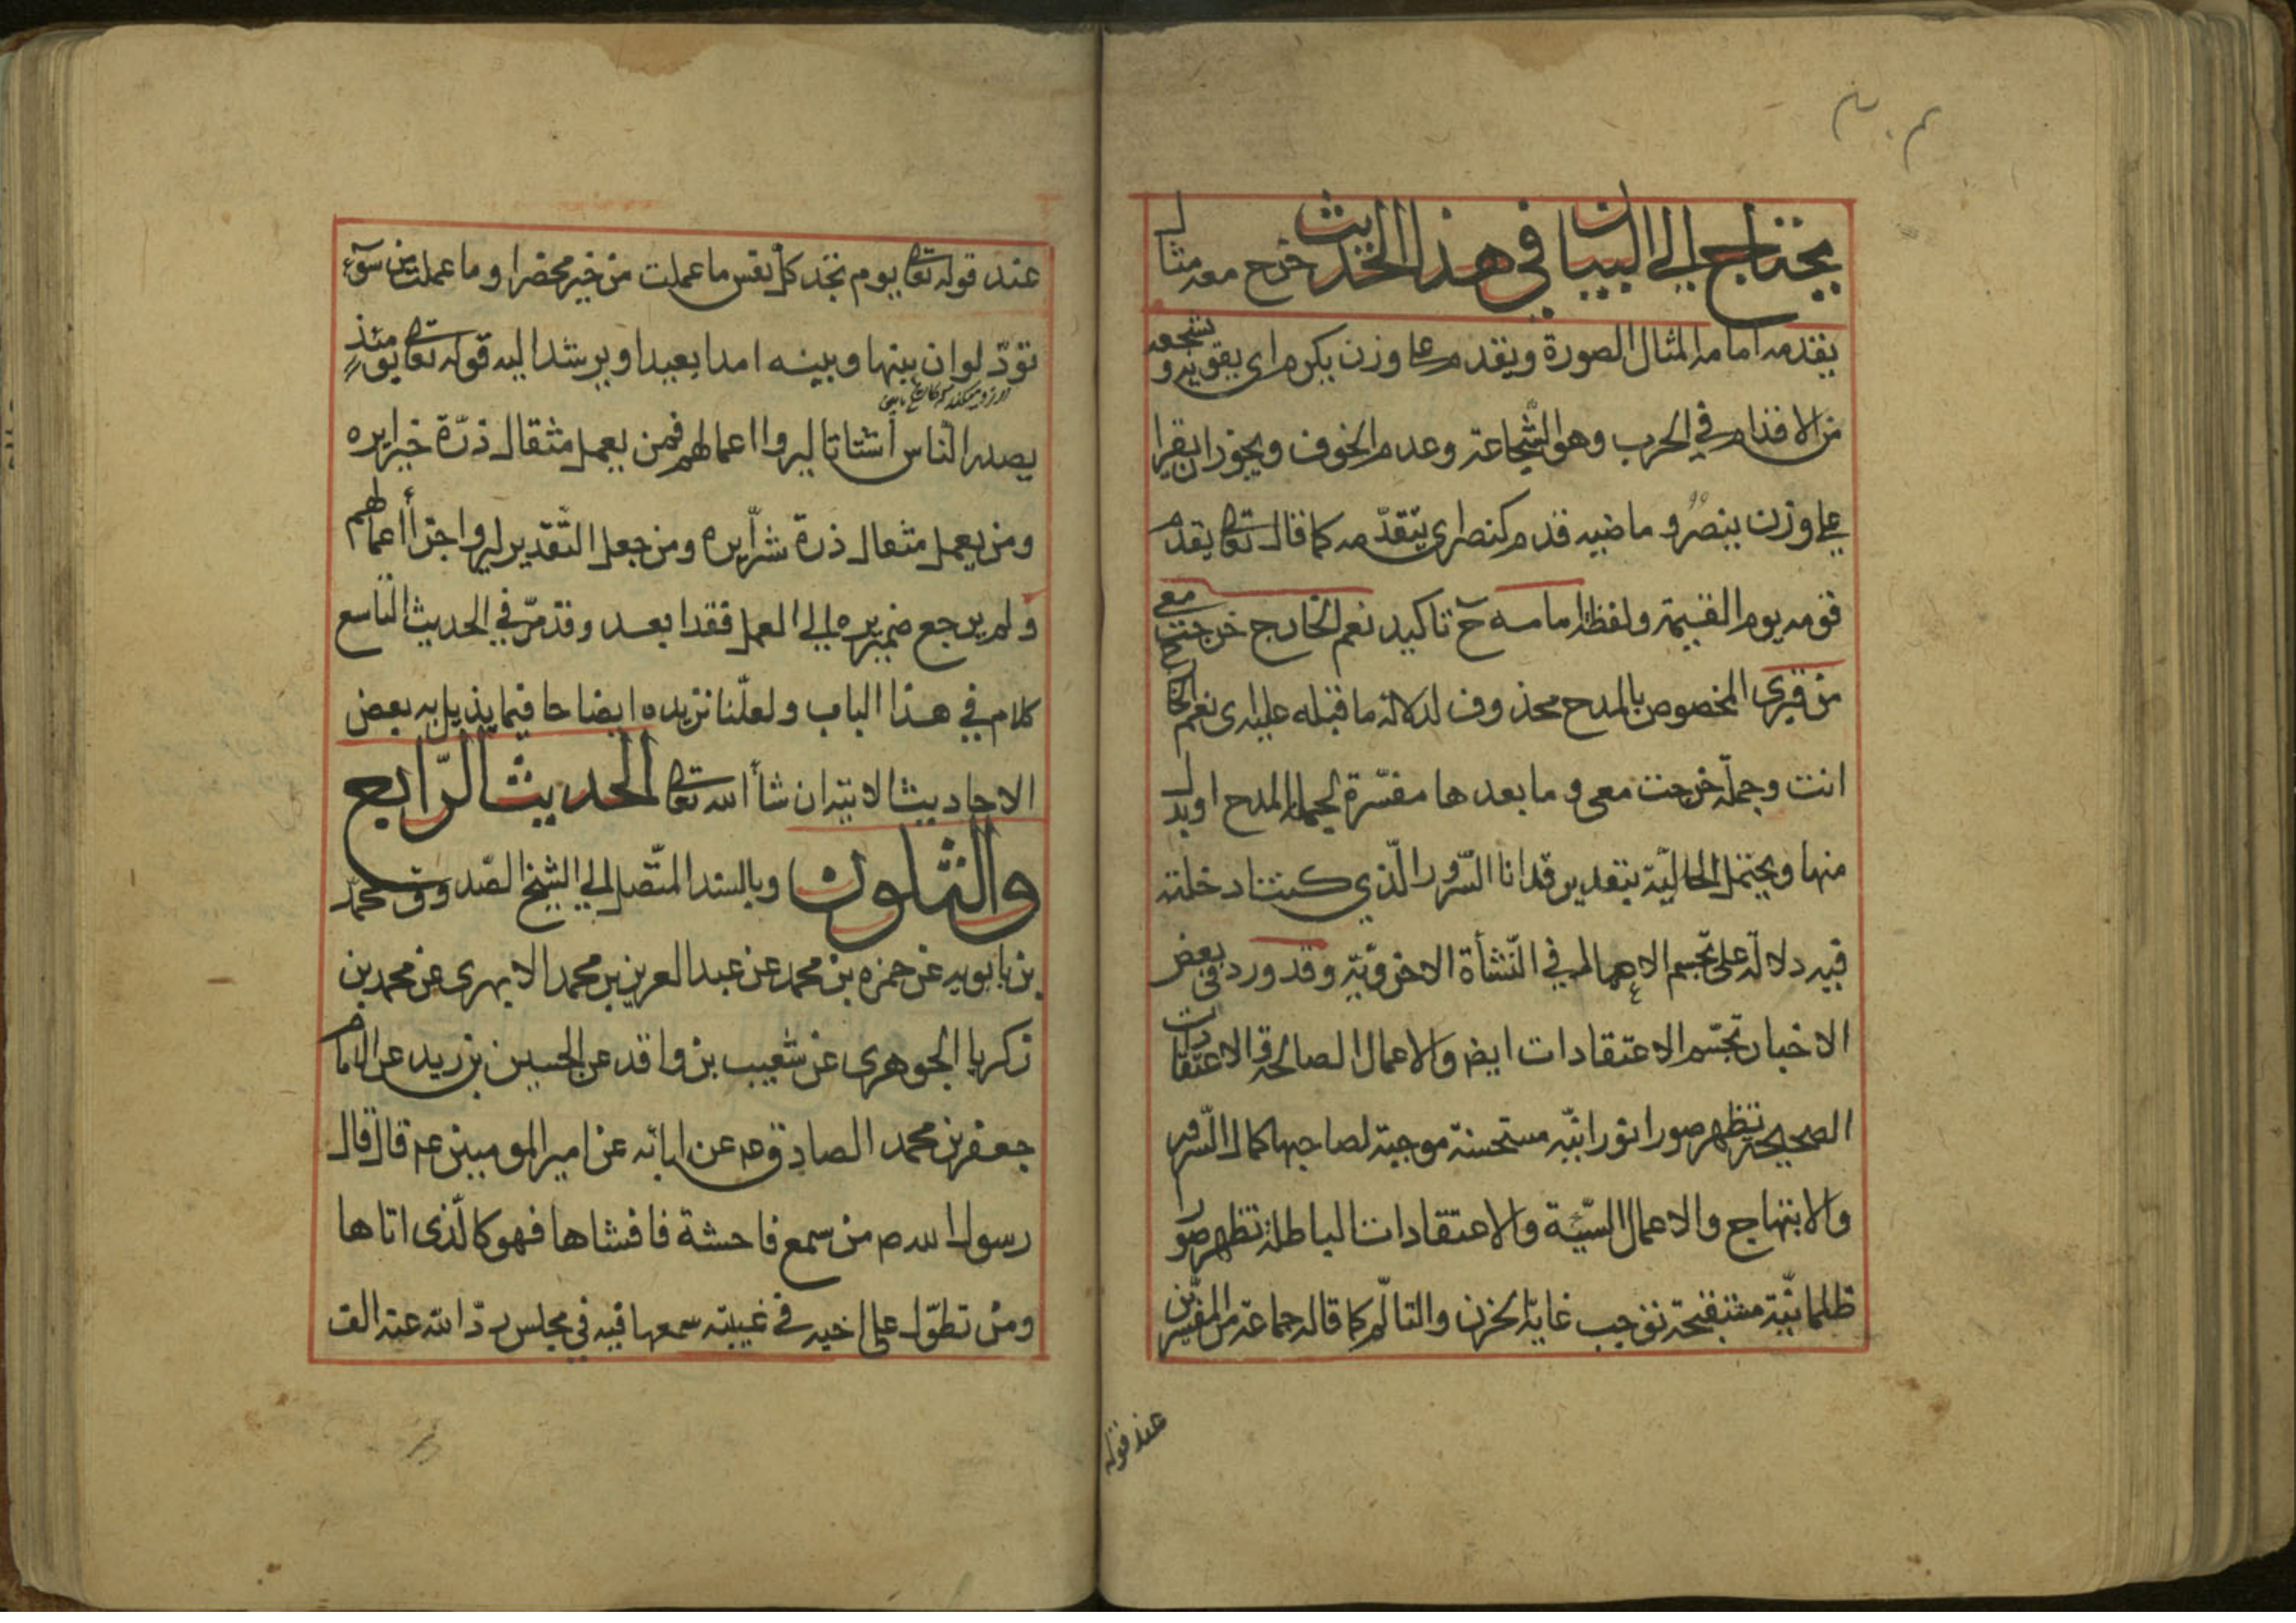 يحتاج الى البيان في هذا الحديث خرج معه مثال
يقدمه امامه المثال الصورة ويقدم على وزن يكرم اى يقويه و يشجعه
من الاقدام في الحرب وهو الشّجاعة وعدم الخوف ويجوز ان يقرا
على وزن ينصُرُ و ماضيه قدم كنصر اى يتقدّمه كما قال تعا يقدم
قومه يوم القيمة ولفظ امامه ح تاكيد نعم الخارج خرجت معى
من قبرى المخصوص بالمدح محذوف لدلالة ما قبله عليه اى نعم الخارج
انت وجملة خرجت معى و ما بعدها مفسّرة لجملة المدح او بدل
منها ويحتمل الحاليّة بتقدير قد انا السّرور الّذي كنت ادخلته
فيه دلالة على تجسم الاعمال في النّشأة الاخرويّة وقد ورد في بعض
الاخبار تجسّم الاعتقادات ايض والاعمال الصالحة والاعتقادات
الصحيحة تظهر صورا نورانيّه مستحسنة موجبة لصاحبها كمال السّرور
والابتهاج والاعمال السّيّئة والاعتقادات الباطلة تظهر صورا
ظلمانيّة مستقبحة توجب غاية الحزن والتالّم كما قاله جماعة من المفسّرين
عند قوله
عند قوله تعا يوم تجد كلّ نفس ما عملت من خير محضرا و ما عملت من سوء
تودّ لو ان بينها وبينه امدا بعيدا ويرشد اليه قوله تعا يومئذ
يصدر النّاس أشتاتا ليروا اعمالهم فمن يعمل مثقال ذرّة خيرا يره
ومن يعمل مثقال ذرة شرّا يره ومن جعل التّقدير ليروا جزأ اعمالهم
ولم يرجع ضمير يره الى العمل فقد ابعد وقد مرّ في الحديث التاسع
كلام في هذا الباب ولعلّنا نزيده ايضاحا فيما يذيل به بعض
الاحاديث الاتية ان شأ الله تعا الحديث الرّابع
والثلون وبالسند المتّصل الى الشيخ الصّدوق محمّد
بن بابويه عن حمزه بن محمد عن عبد العزيز بن محمد الابهرى عن محمد بن
زكريا الجوهرى عن شعيب بن واقد عن الحسين بن زيد عن الامام
جعفر بن محمد الصادق عم عن ابائه عن امير المومنين عم قال قال
رسول الله ص من سمع فاحشة فافشاها فهو كالّذى اتاها
ومن تطوّل على اخيه في غيبته سمعها فيه في مجلس ردّ الله عنه الف